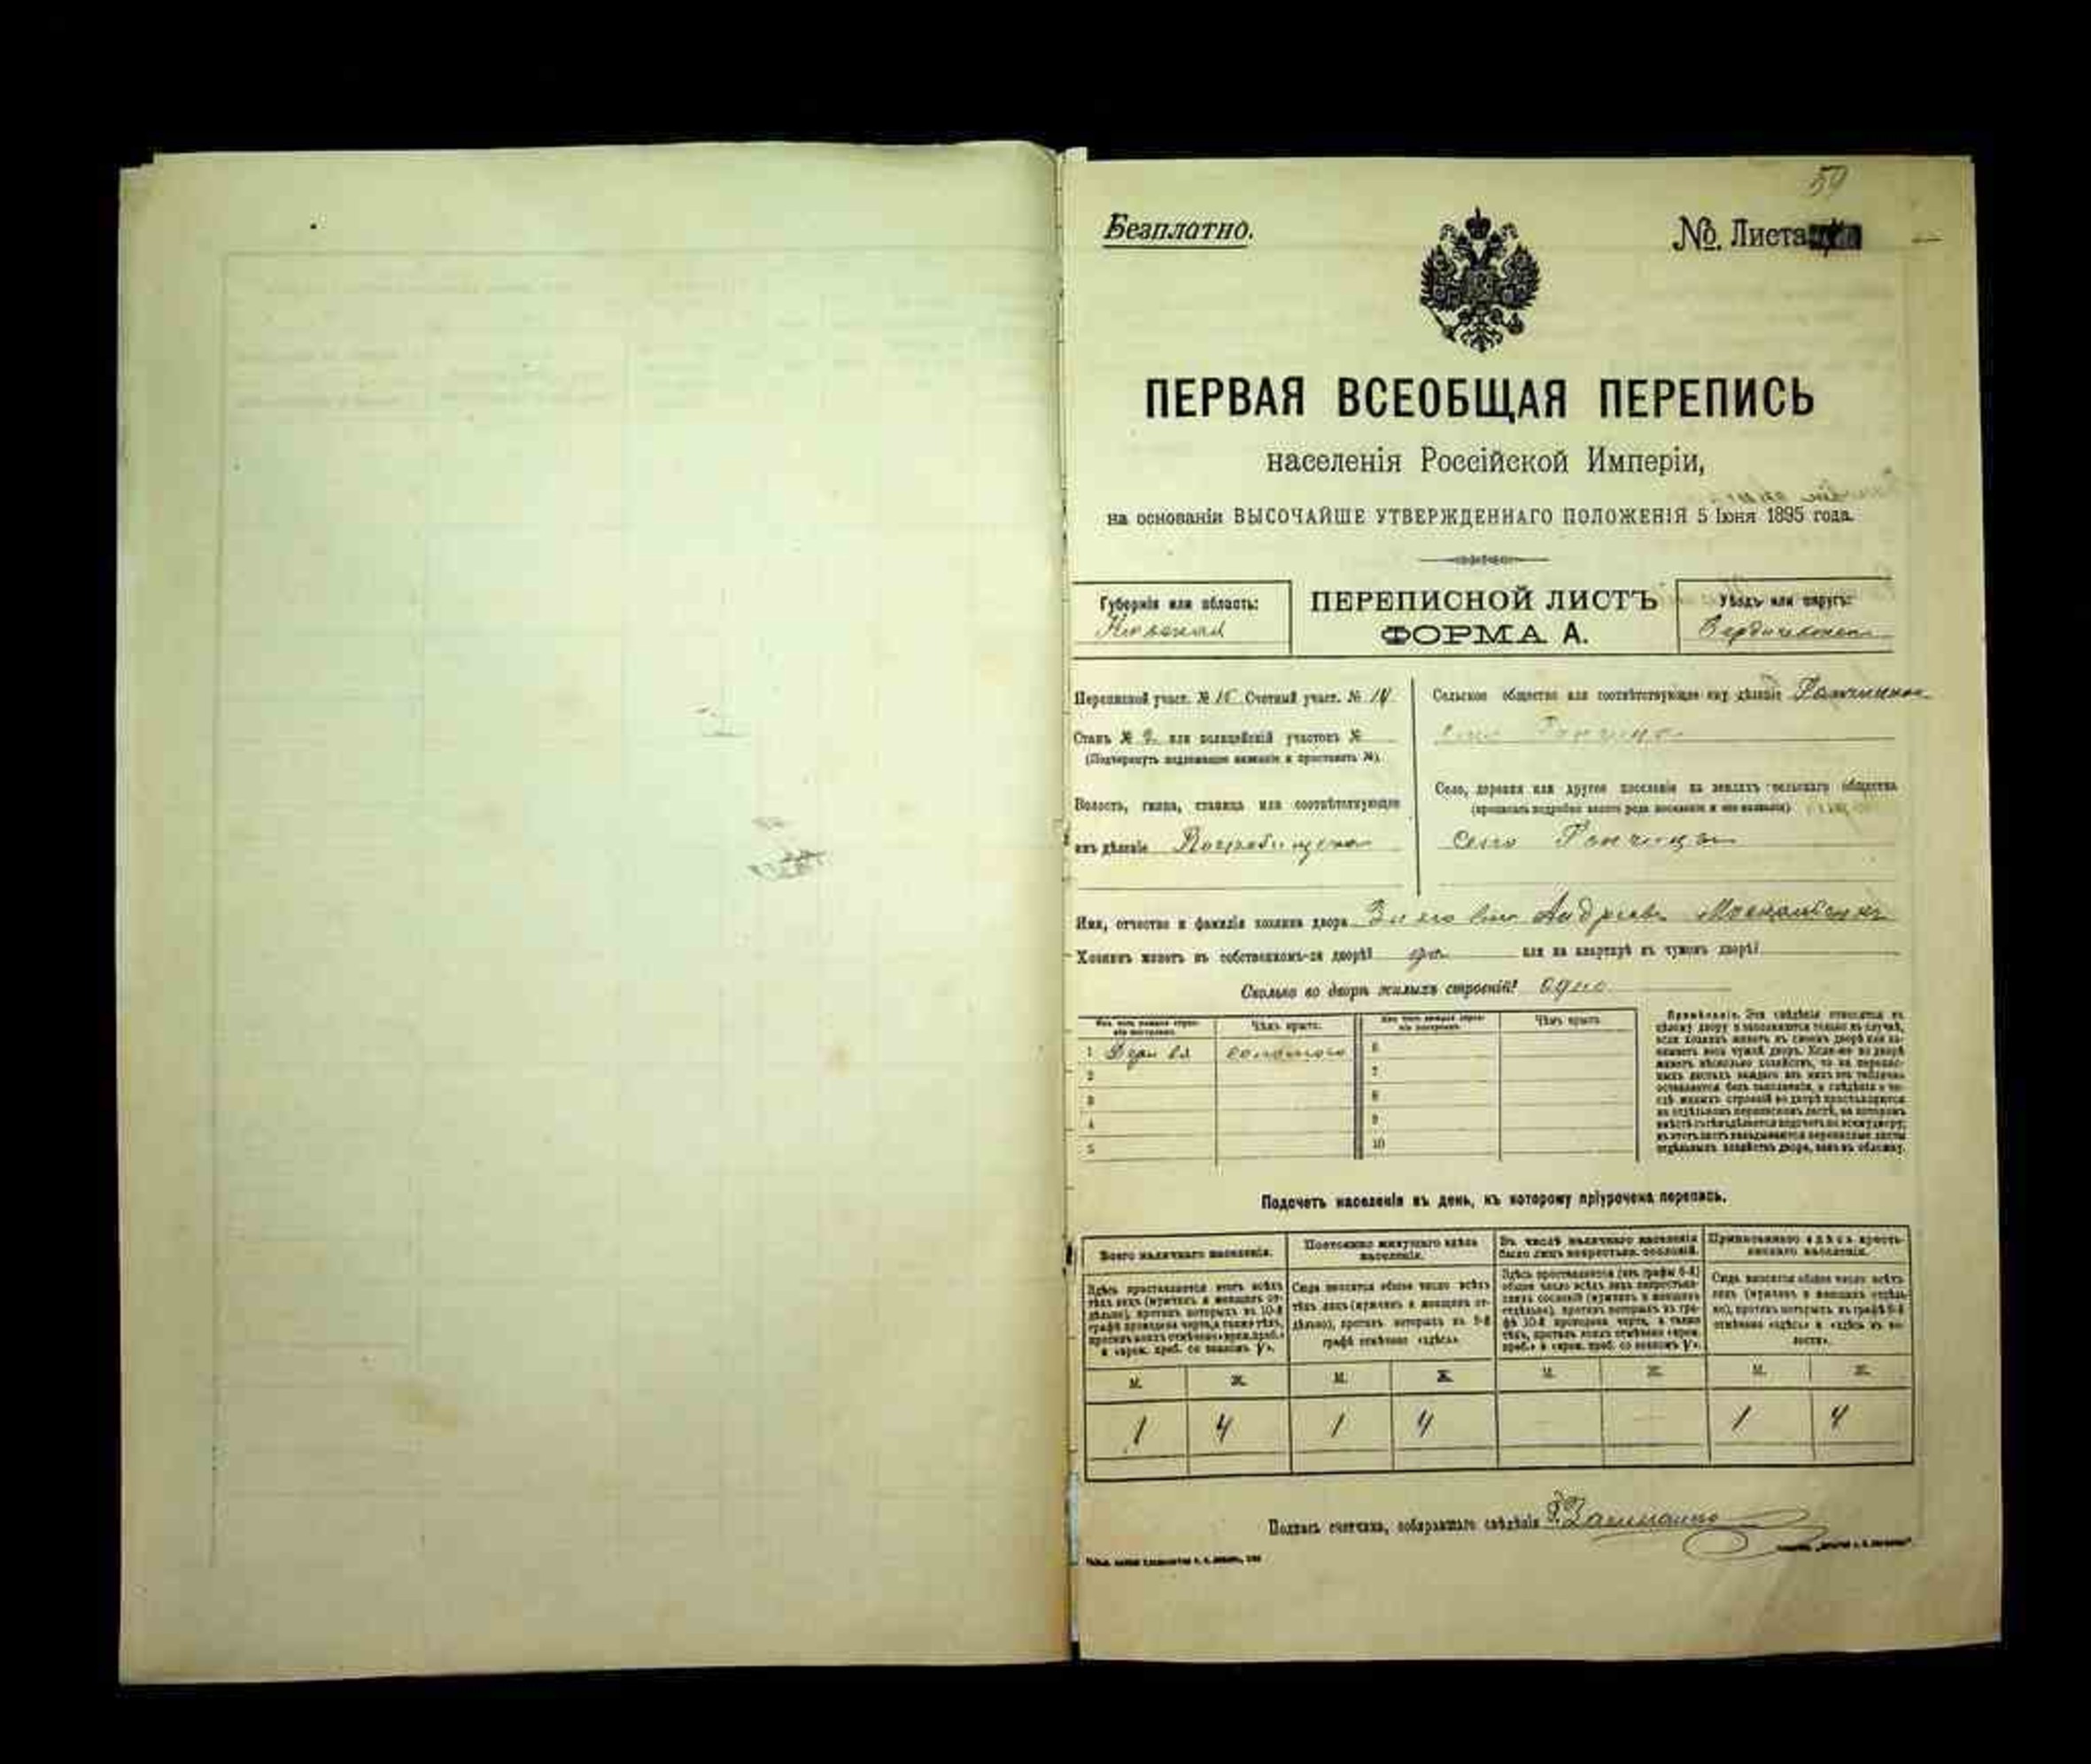 59
Безплатно.
№. Листа
ПЕРВАЯ ВСЕОБЩАЯ ПЕРЕПИСЬ
населенія Россійской Имперіи,
на основаніи ВЫСОЧАЙШЕ УТВЕРЖДЕННАГО ПОЛОЖЕНІЯ 5 Іюня 1895 года.
Губернія или область:
Кіевская
ПЕРЕПИСНОЙ ЛИСТЪ
ФОРМА А.
Уѣздъ или округъ:
Бердичевскій
Переписной участ. № 15 Счетный участ. № 14
Станъ № 2 или полицейскій участокъ №
(Подчеркнуть подлежащее названіе и проставить №).
Волость, гмина, станица или соотвѣтствующее
имъ дѣленіе
Сельское общество или соотвѣтствующее ему дѣленіе
Село, деревня или другое поселеніе на земляхъ сельскаго общества
(прописать подробно какого рода поселеніе и его названіе)
село
Имя, отчество и фамилія хозяина двора Андреевъ
Хозяинъ живетъ въ собственномъ-ли дворѣ? да или на квартирѣ въ чужомъ дворѣ?
Сколько во дворѣ жилыхъ строеній? одно
Изъ чего каждое строеніе построено. Чѣмъ крыто. Изъ чего каждое строеніе построено. Чѣмъ крыто.
1 соломою 6
2 7
3 8
4 9
5 10
Примѣчаніе. Эти свѣдѣнія относятся къ
цѣлому двору и заполняются только въ случаѣ,
если хозяинъ живетъ въ своемъ дворѣ или за-
нимаетъ весь чужой дворъ. Если-же во дворѣ
живетъ нѣсколько хозяйствъ, то на перепис-
ныхъ листахъ каждаго изъ нихъ эта табличка
оставляется безъ заполненія, а свѣдѣнія о чи-
слѣ жилыхъ строеній во дворѣ проставляются
на отдѣльномъ переписномъ листѣ, на которомъ
Подсчетъ населенія въ день, къ которому пріурочена перепись.
Всего наличнаго населенія.
Постоянно живущаго здѣсь населенія.
Въ числѣ наличнаго населенія было лицъ некрестьян. сословій.
Приписаннаго здѣсь крестьянскаго населенія.
Здѣсь проставляется итогъ всѣхъ
тѣхъ лицъ (мужчинъ и женщинъ от-
дѣльно), противъ которыхъ въ 10-й
графѣ проведена черта, а также тѣхъ,
противъ коихъ отмѣчено «врем. преб.»
и «врем. преб. со знакомъ V».
Сюда вносится общее число всѣхъ
тѣхъ лицъ (мужчинъ и женщинъ от-
дѣльно), противъ которыхъ въ 9-й
графѣ отмѣчено «здѣсь».
Здѣсь проставляется (изъ графы 6-й)
общее число всѣхъ лицъ некрестьян-
скихъ сословій (мужчинъ и женщинъ
отдѣльно), противъ которыхъ въ гра-
фѣ 10-й проведена черта, а также
тѣхъ, противъ коихъ отмѣчено «врем.
преб.» и «врем. преб. со знакомъ V».
Сюда вносится общее число всѣхъ
лицъ (мужчинъ и женщинъ отдѣль-
но), противъ которыхъ въ графѣ 8-й
отмѣчено «здѣсь» и «здѣсь въ во-
лости».
М. Ж. М. Ж. М. Ж. М. Ж.
1 4 1 4 — — 1 4
Подпись счетчика, собиравшаго свѣдѣнія